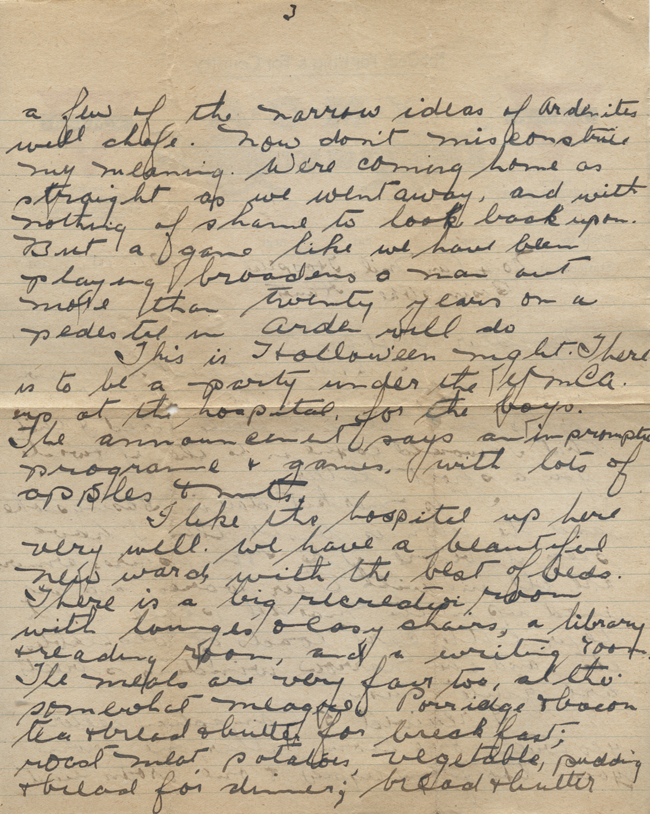 3
a few of the narrow ideas of Ardenites
will chafe. Now don't misconstrue
my meaning. We're coming home as
straight as we went away, and with
nothing of shame to look back upon.
But a game like we have been
playing broadens a man out
more than twenty years on a
pedestil in Arden will do
This is Hallowe'en night. There
is to be a party under the Y.M.C.A.
up at the hospital, for the boys.
The announcement says an impromptu
programe & games, with lots of
apples & nuts.
I like this hospital up here
very well. We have a beautiful
new ward, with the best of beds.
There is a big recreation room
with lounges & easy chairs, a library
& reading room, and a writing room.
The meals are very fair too, altho
somewhat meagre. Porridge & bacon
tea & bread & butter for breakfast;
roast meat potatoes, vegetable, pudding
& bread for dinner; bread & butter